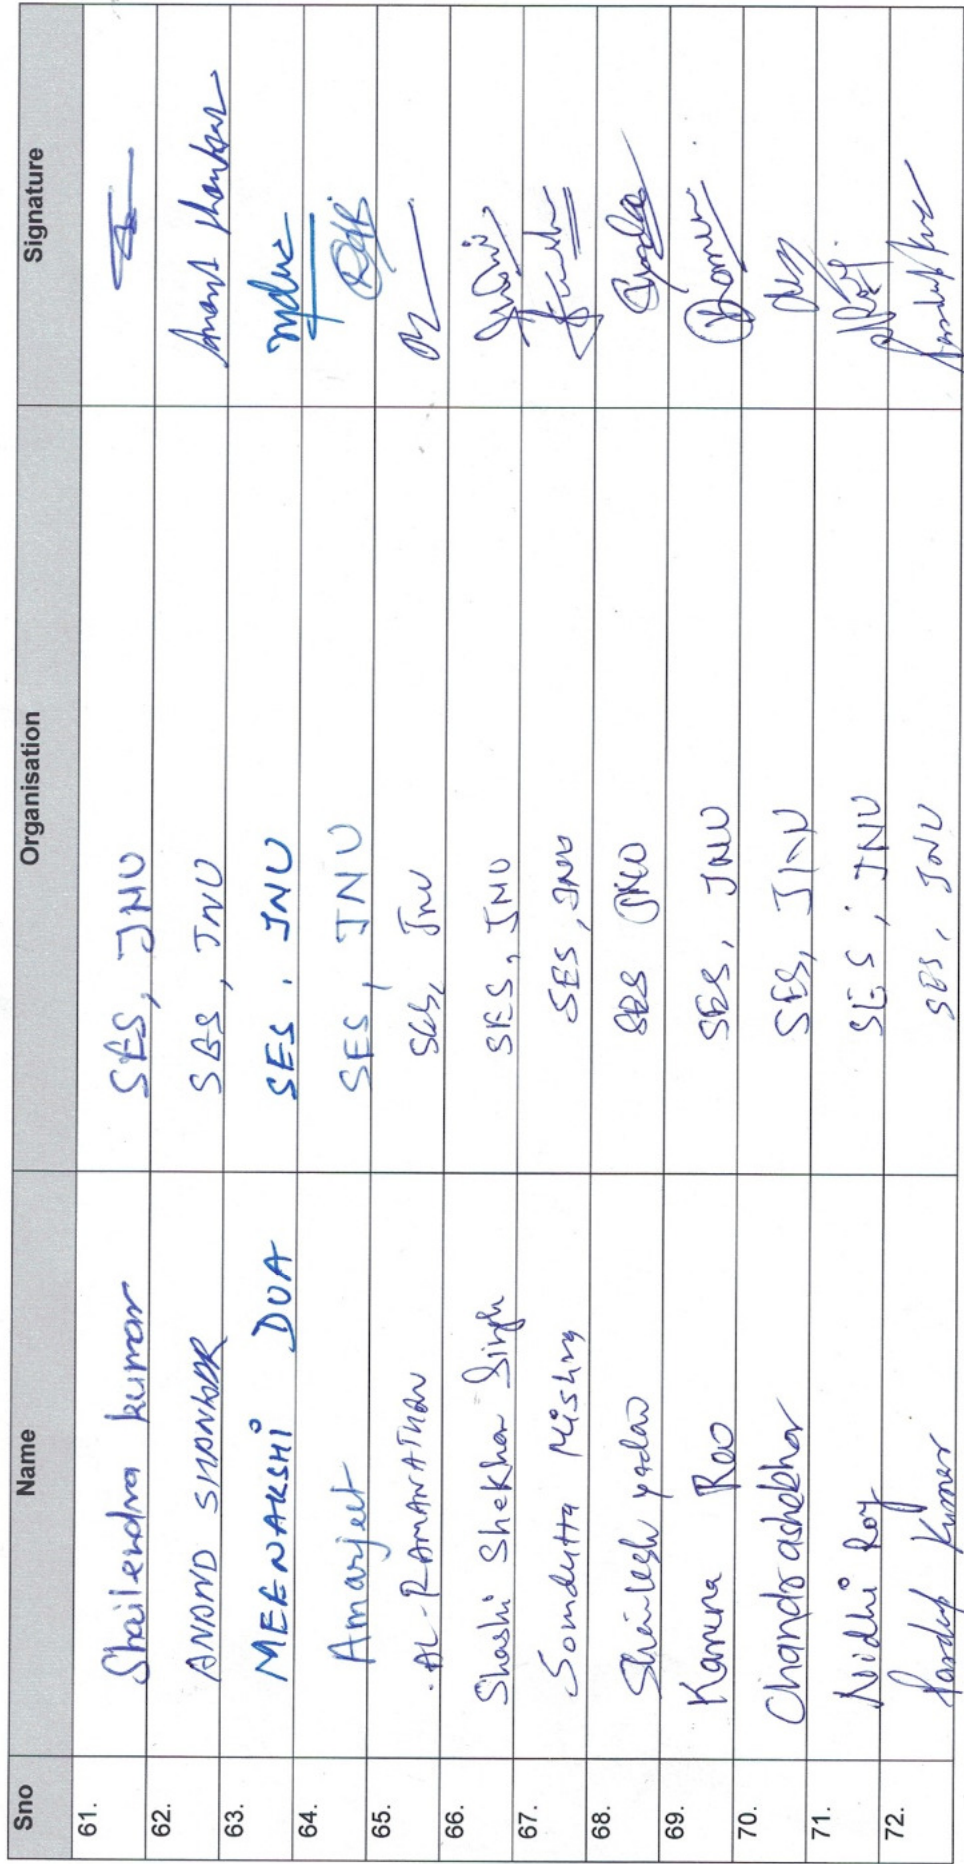 Sno Name Organisation Signature
61. Shailendra kumar SES, JNU
62. ANAND SHANKAR SES, JNU Anand Shankar
63. MEENAKSHI DUA SES, JNU
64. Amarjeet SES, JNU
65. AL-RAMANATHAN SES, JNU
66. Shashi Shekhar Singh SES, JNU
67. Somdutta Mishra SES, JNU
68. Shailesh yadav SES JNU
69. Karuna Rao SES, JNU
70. Chandrashekhar SES, JNU
71. Nidhi Roy SES, JNU
72. Pardeep Kumar SES, JNU